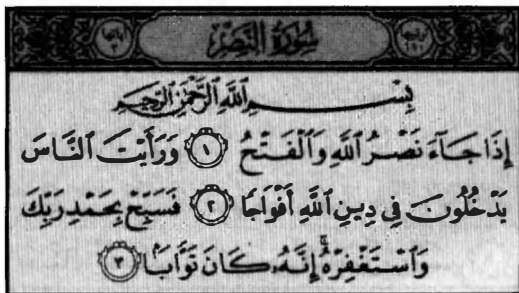 سُورَةُ النَّصْرِ
بِسْمِ ٱللَّهِ ٱلرَّحْمَٰنِ ٱلرَّحِيمِ
إِذَا جَآءَ نَصْرُ ٱللَّهِ وَٱلْفَتْحُ ١ وَرَأَيْتَ ٱلنَّاسَ
يَدْخُلُونَ فِي دِينِ ٱللَّهِ أَفْوَاجًا ٢ فَسَبِّحْ بِحَمْدِ رَبِّكَ
وَٱسْتَغْفِرْهُۚ إِنَّهُۥ كَانَ تَوَّابًۢا ٣